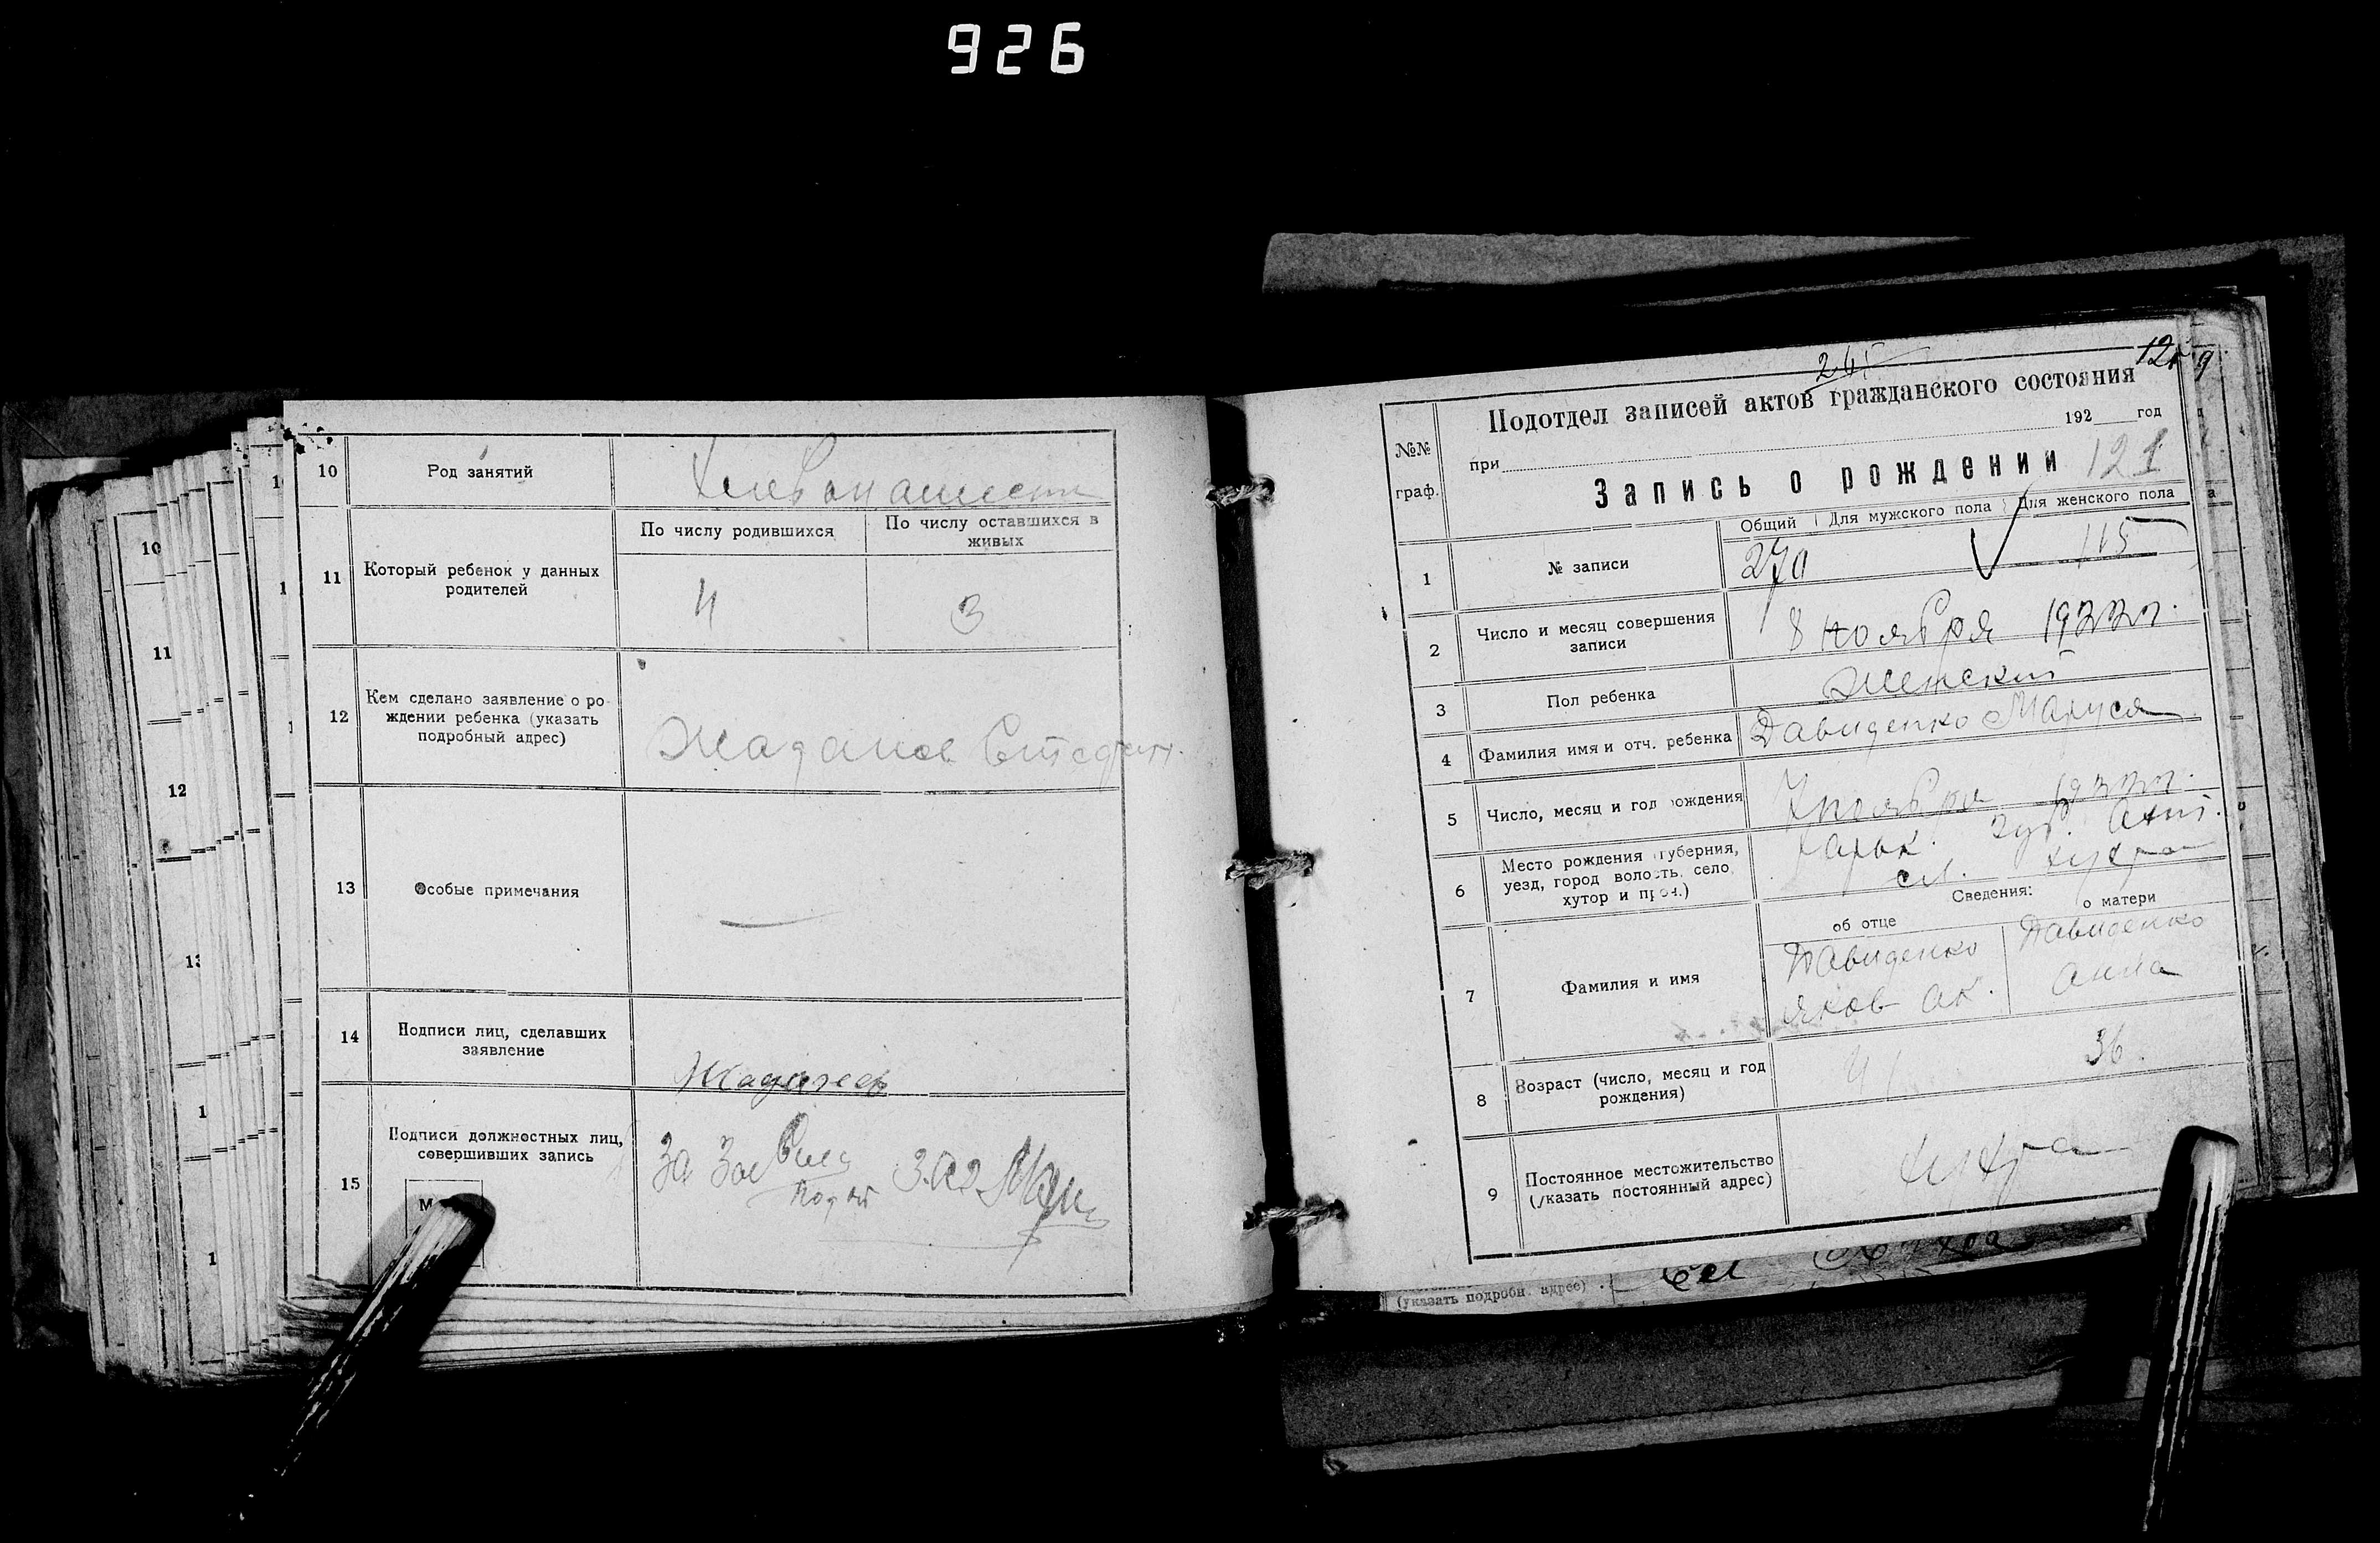 926
10
Род занятий
Хлебопашест
11
Который ребенок у данных
родителей
По числу родившихся
По числу оставшихся в
живых
4
3
12
Кем сделано заявление о ро-
ждении ребенка (указать
подробный адрес)
Жаданов Стефан.
13
Особые примечания
—
14
Подписи лиц, сделавших
заявление
15
Подписи должностных лиц,
совершивших запись
М
За Зав
Подот
10
11
12
245
№№
граф.
Подотдел записей актов гражданского состояния
при
192 год
Запись о рождении 121
Общий
Для мужского пола
Для женского пола
1
№ записи
270
115
2
Число и месяц совершения
записи
8 ноября 1922 г.
3
Пол ребенка
Женский
4
Фамилия имя и отч. ребенка
Давиденко Маруся
5
Число, месяц и год рождения
7 ноября 1922 г.
6
Место рождения (губерния,
уезд, город волость, село,
хутор и проч.)
Харьк. губ.
сл.
Сведения:
об отце
о матери
7
Фамилия и имя
Давиденко
Яков Ак.
Давиденко
Анна
8
Возраст (число, месяц и год
рождения)
41
36.
9
Постоянное местожительство
(указать постоянный адрес)
(указать подробн. адрес)